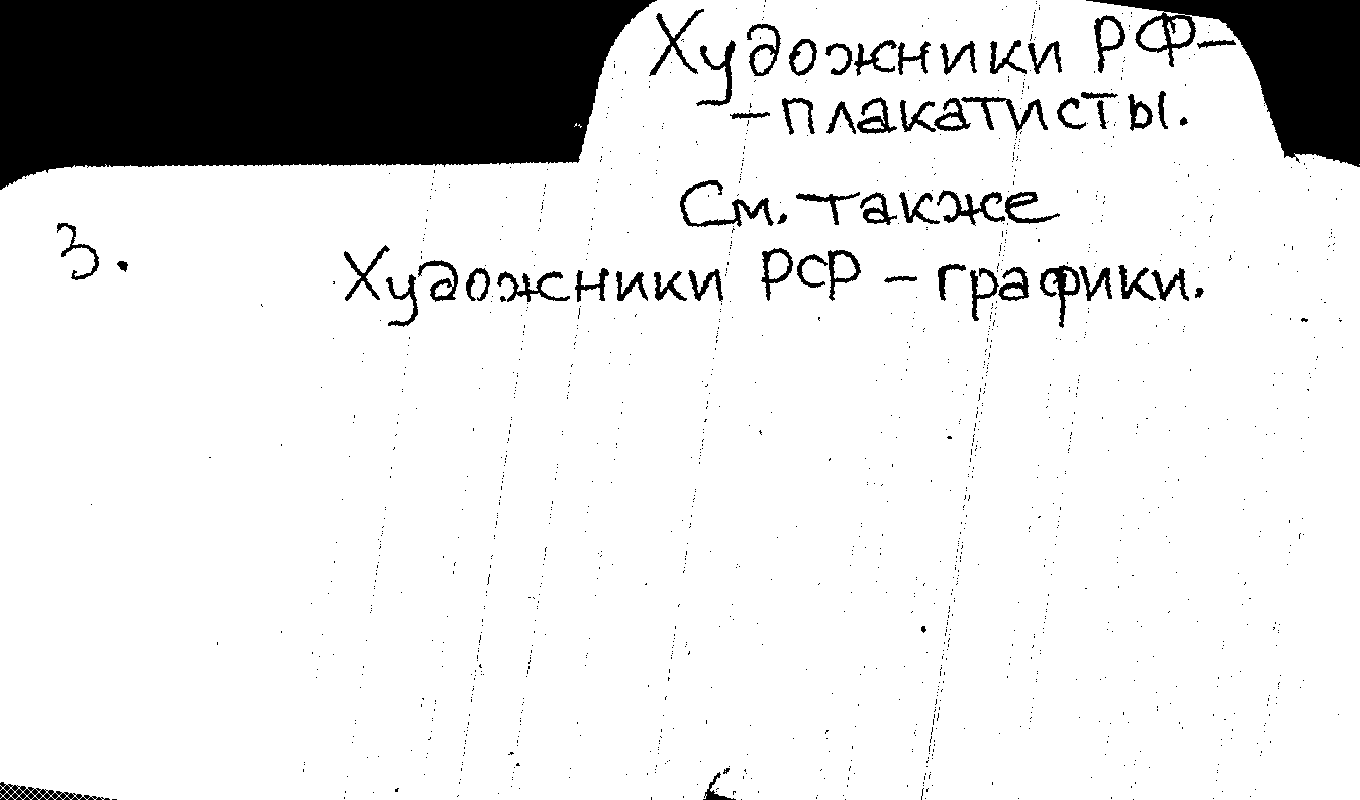 Художники РФ-
-плакатисты.
См. также
3.
Художники РСР - графики.